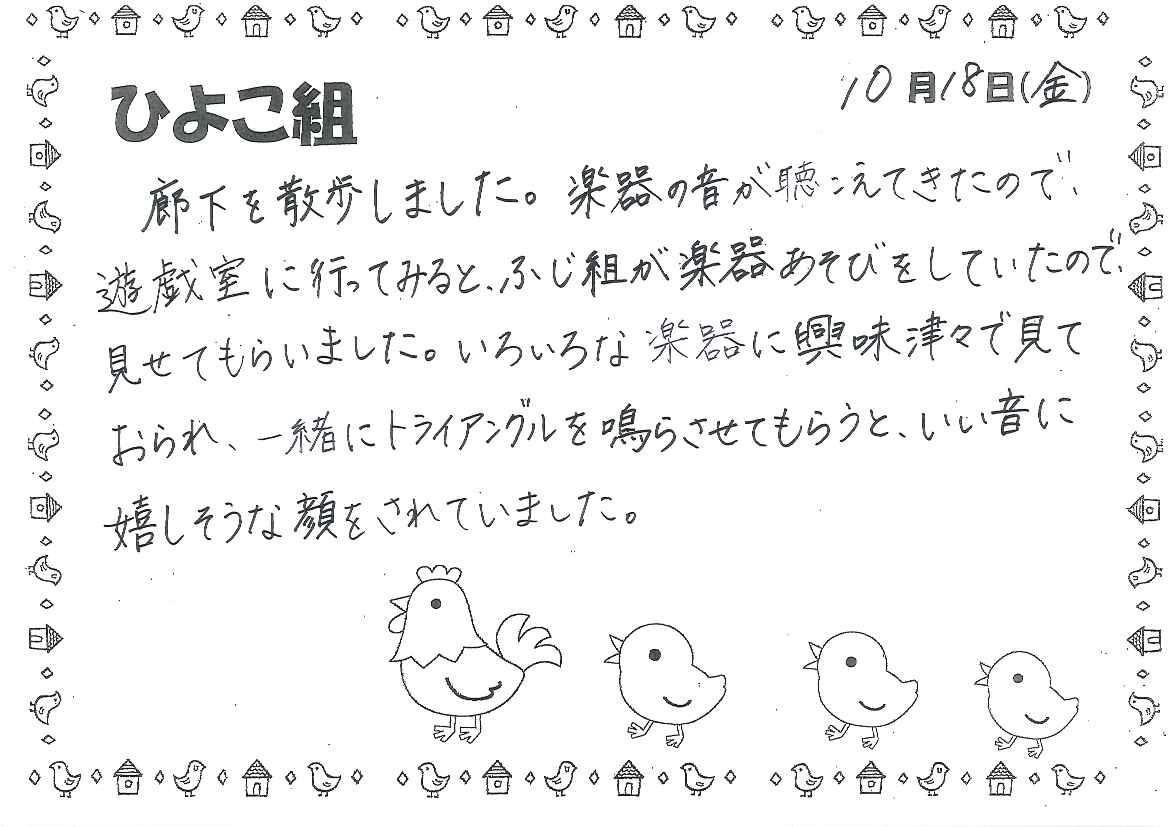 ひよこ組
10月18日(金)
廊下を散歩しました。楽器の音が聴こえてきたので、
遊戯室に行ってみると、ふじ組が楽器あそびをしていたので、
見せてもらいました。いろいろな楽器に興味津々で見て
おられ、一緒にトライアングルを鳴らさせてもらうと、いい音に
嬉しそうな顔をされていました。